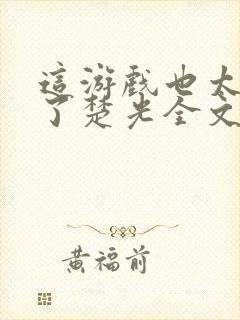 這游戲也太
了楚光全文
黃福前